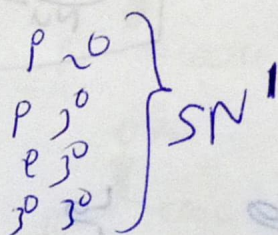 P 2°
P 3°
e 3°
3° 3°
} SN1